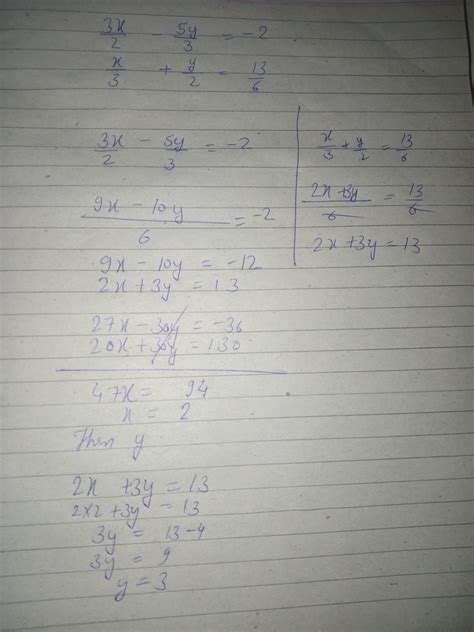 3x/2 - 5y/3 = -2
x/3 + y/2 = 13/6
3x/2 - 5y/3 = -2
(9x - 10y)/6 = -2
9x - 10y = -12
2x + 3y = 13
27x - 30y = -36
20x + 30y = 130
47x = 94
x = 2
Then y
2x + 3y = 13
2x2 + 3y = 13
3y = 13-4
3y = 9
y = 3
x/3 + y/2 = 13/6
(2x + 3y)/6 = 13/6
2x + 3y = 13